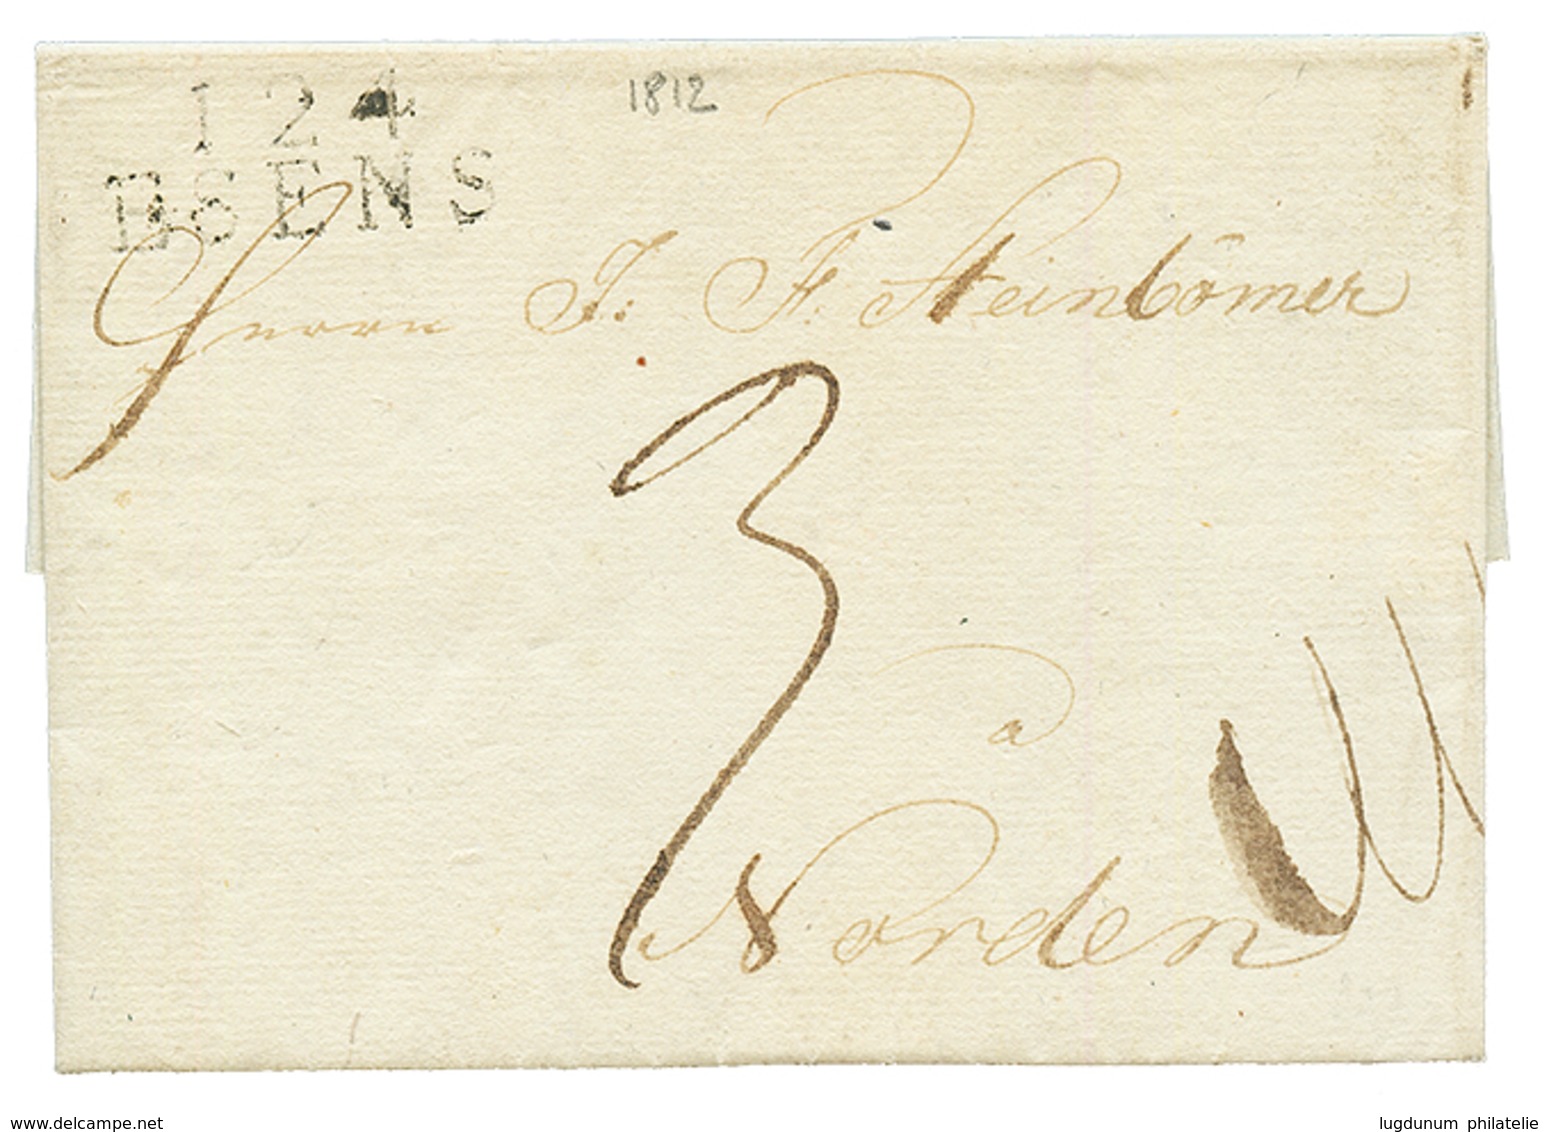 124
ESENS
1812
Herrn J: F: Steinbömer
3
a
Norden
www.delcampe.net
lugdunum philatelie